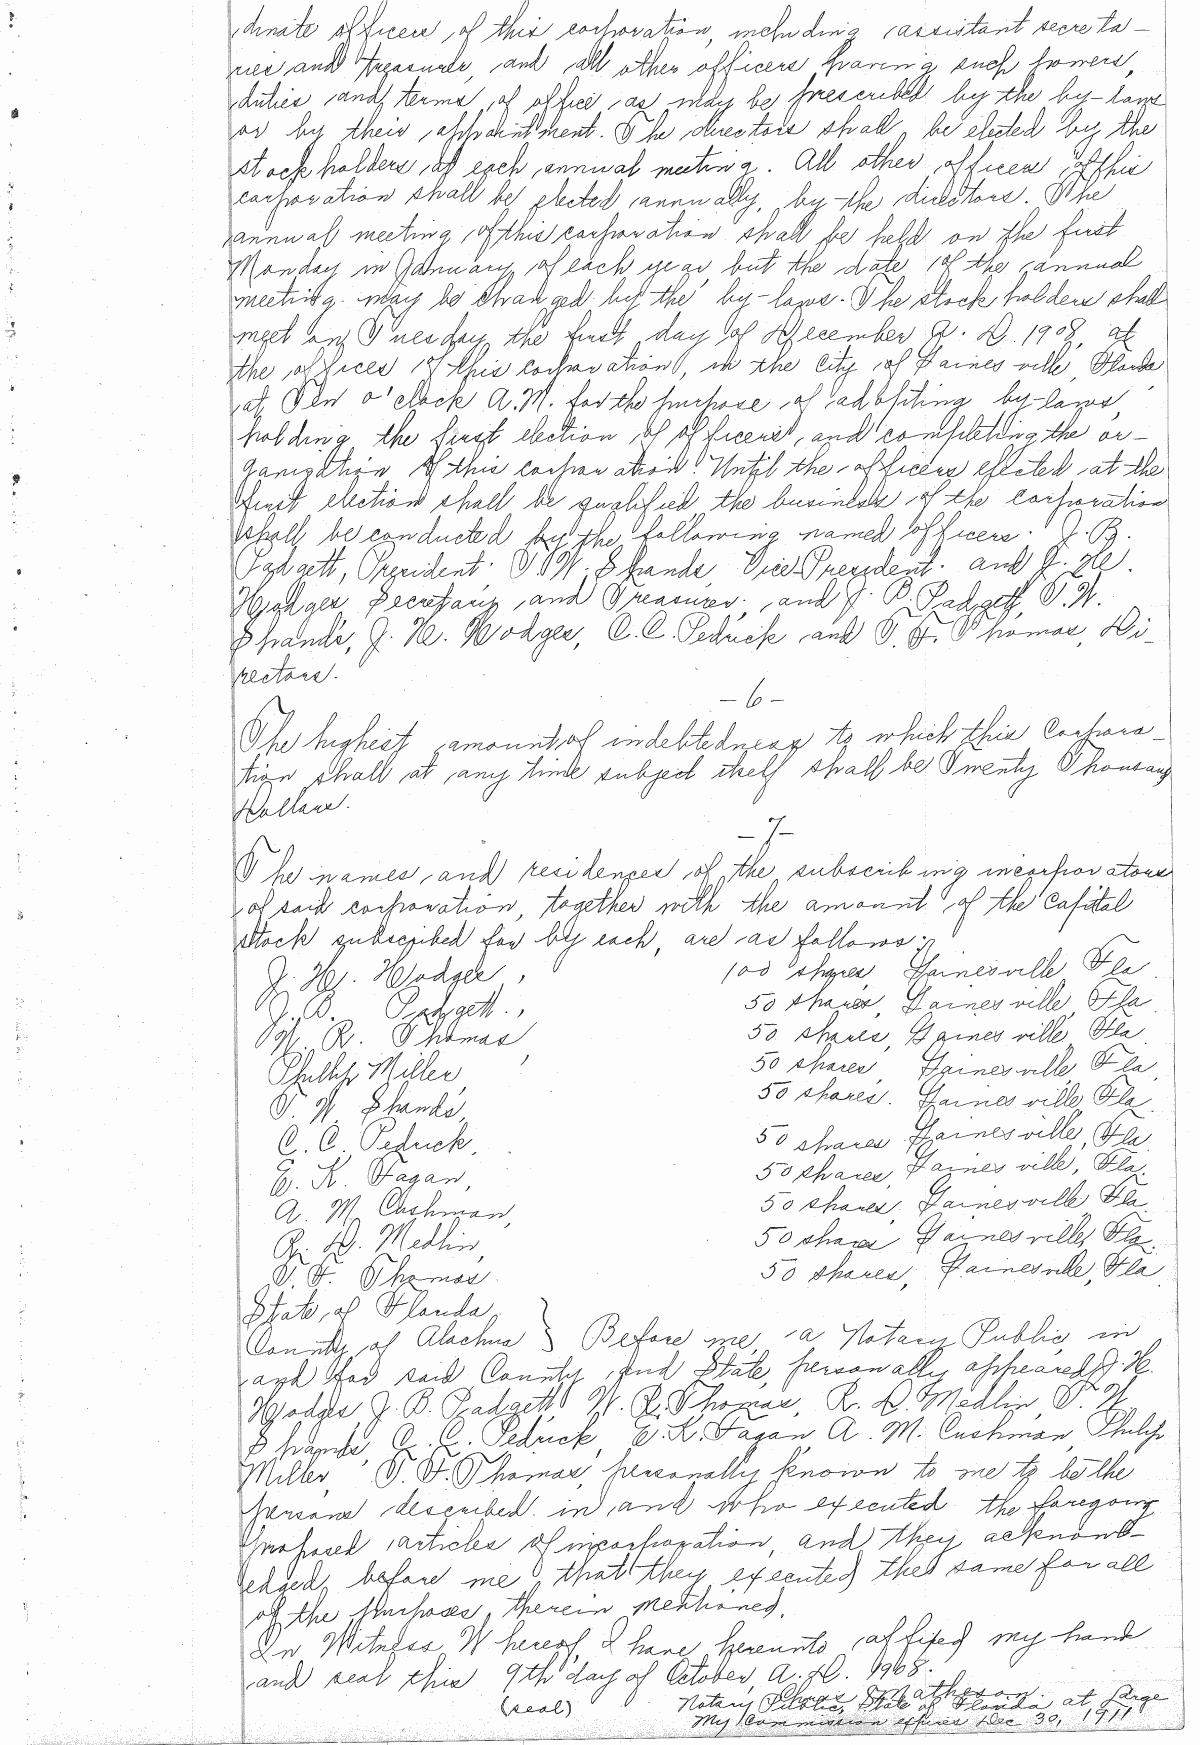 dinate officers of this corporation, including assistant secreta-
ries and treasurer, and all other officers having such powers,
duties and terms of office as may be prescribed by the by-laws
or by their appointment. The directors shall be elected by the
stockholders at each annual meeting. All other officers of this
corporation shall be elected annually, by the directors. The
annual meeting of this corporation shall be held on the first
Monday in January of each year, but the date of the annual
meeting may be changed by the by-laws. The stockholders shall
meet on Tuesday the first day of December A. D. 1908, at
the offices of this corporation, in the city of Gainesville, Florida
at Ten o'clock A.M. for the purpose of adopting by-laws,
holding the first election of officers, and completing the or-
ganization of this corporation. Until the officers elected at the
first election shall be qualified the business of the corporation
shall be conducted by the following named officers. J. B.
Padgett, President. T. W. Shands, Vice President. and J. H.
Hodges, Secretary and Treasurer; and J. B. Padgett, T. W.
Shands, J. H. Hodges, C. C. Pedrick and T. F. Thomas, Di-
rectors.
-6-
The highest amount of indebtedness to which this Corpora-
tion shall at any time subject itself shall be Twenty Thousand
Dollars.
-7-
The names and residences of the subscribing incorporators
of said corporation, together with the amount of the Capital
stock subscribed for by each, are as follows:
J. H. Hodges, 100 shares, Gainesville Fla
J. B. Padgett., 50 shares, Gainesville, Fla
W. R. Thomas, 50 shares, Gainesville, Fla
Phillip Miller, 50 shares, Gainesville, Fla,
T. W. Shands, 50 shares. Gainesville, Fla.
C. C. Pedrick, 50 shares Gainesville, Fla.
E. K. Fagan, 50 shares, Gainesville, Fla.
A. M. Cushman, 50 shares, Gainesville Fla.
R. D. Medlin, 50 shares Gainesville, Fla.
T. F. Thomas. 50 shares, Gainesville, Fla
State of Florida,
County of Alachua } Before me, a Notary Public, in
and for said County and State, personally appeared J. H.
Hodges, J. B. Padgett, W. R. Thomas, R. D. Medlin, T. W.
Shands, C. C. Pedrick, E. K. Fagan, A. M. Cushman, Philip
Miller, T. F. Thomas, personally known to me to be the
persons described in and who executed the foregoing
proposed articles of incorporation, and they acknowl-
edged before me that they executed the same for all
of the purposes therein mentioned.
In Witness Whereof, I have hereunto affixed my hand
and seal this 9th day of October, A. D. 1908.
Chris Matheson.
(seal) Notary Public, State of Florida at Large
My Commission expires Dec 30, 1911